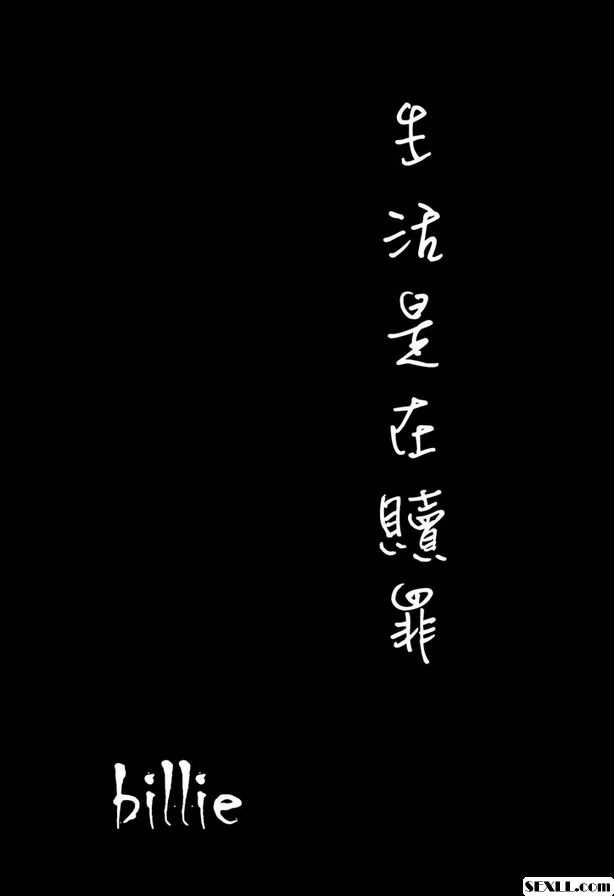 生活是在贖罪
billie
SEXLL.com